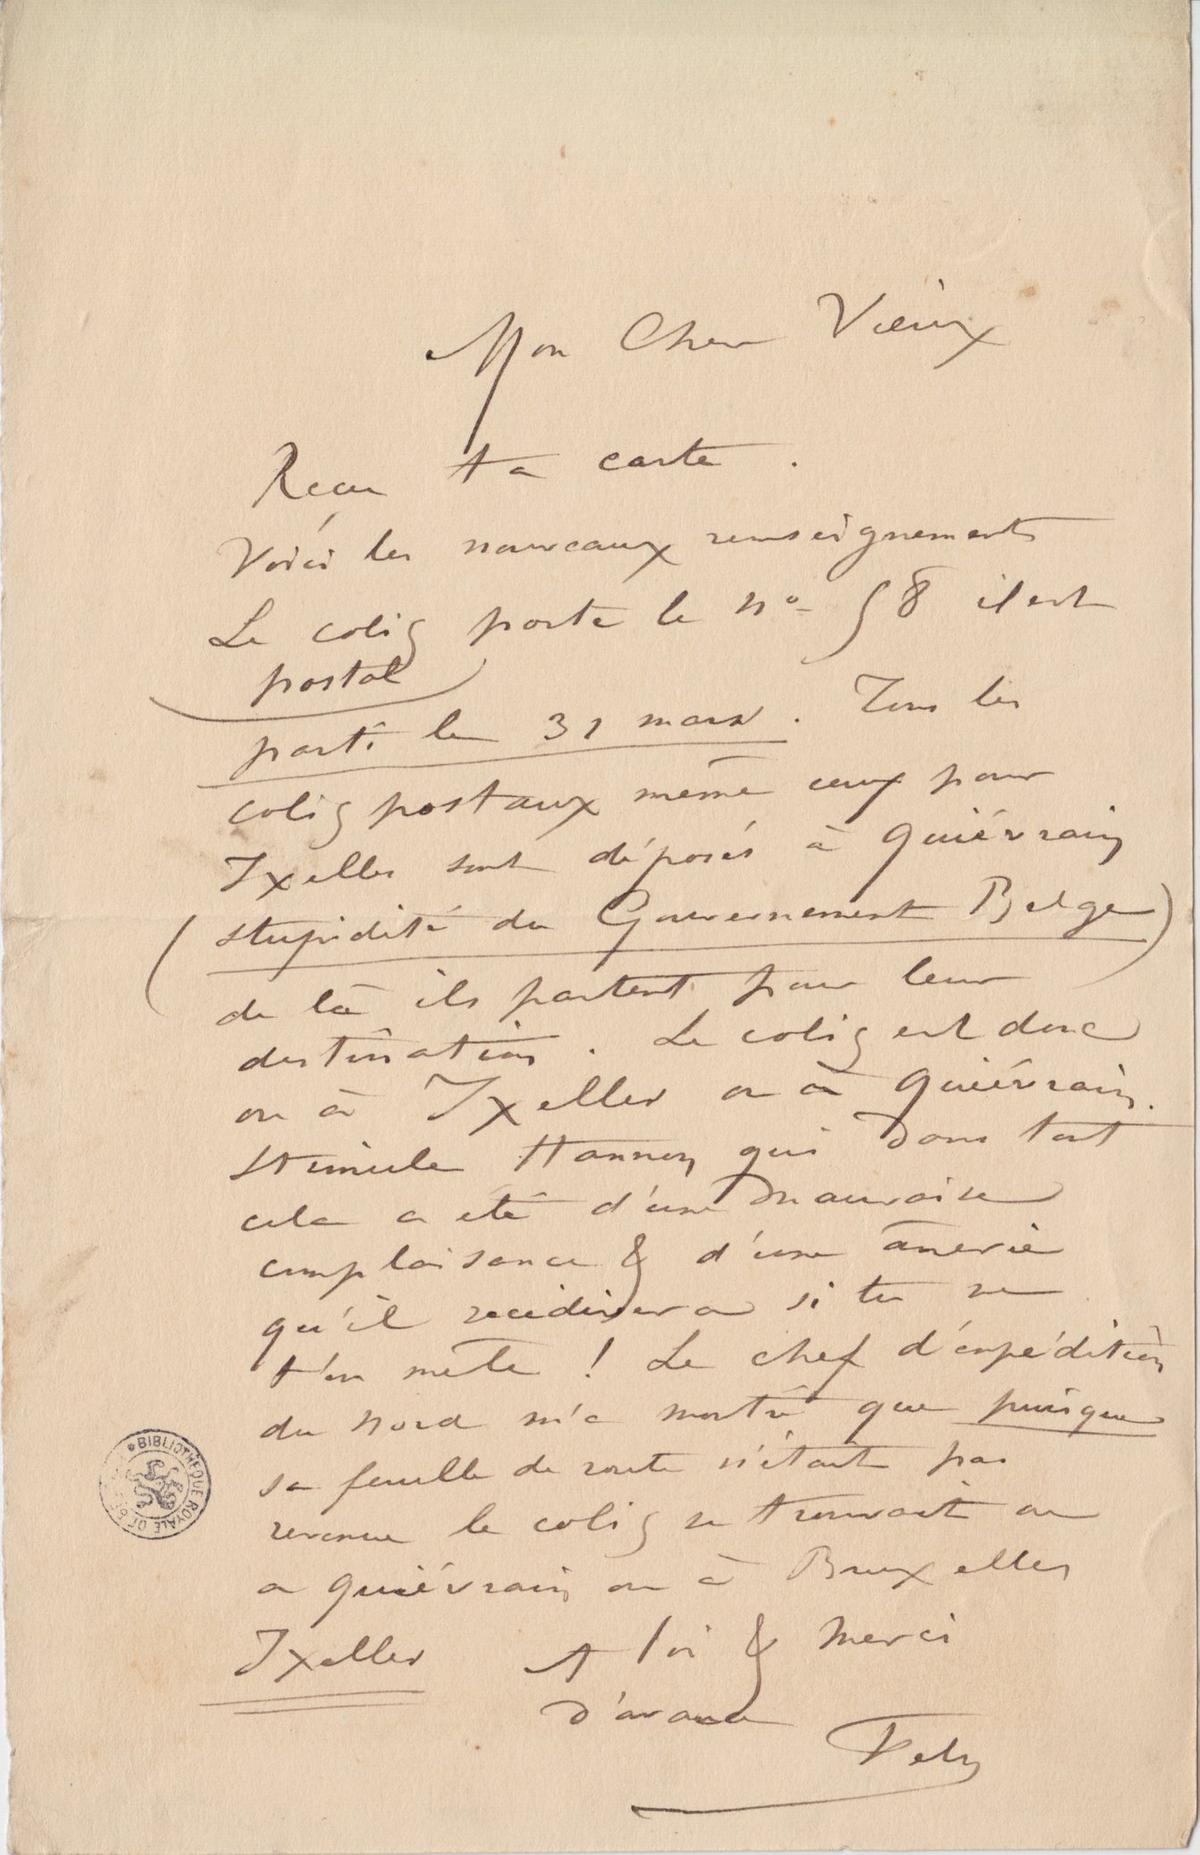 Mon Cher Vieux
Reçu ta carte.
Voici les nouveaux renseignements
Le colis porte le n° 58 il est
postal
parti le 31 mars. Tous les
colis postaux même ceux pour
Ixelles sont déposés à Quiévrain
(stupidité du Gouvernement Belge)
de là ils partent pour leur
destination. Le colis est donc
ou à Ixelles ou à Quiévrain.
Stimule Hannon qui dans tout
cela a été d'une mauvaise
complaisance & d'une ânerie
qu'il recidivera si tu ne
t'en mêle! Le chef d'expédition
du Nord m'a montré que puisque
sa feuille de route n'était pas
revenue le colis se trouvait ou
a Quiévrain ou à Bruxelles
Ixelles A toi & merci
d'avance
Fely
BIBLIOTHÈQUE ROYALE DE